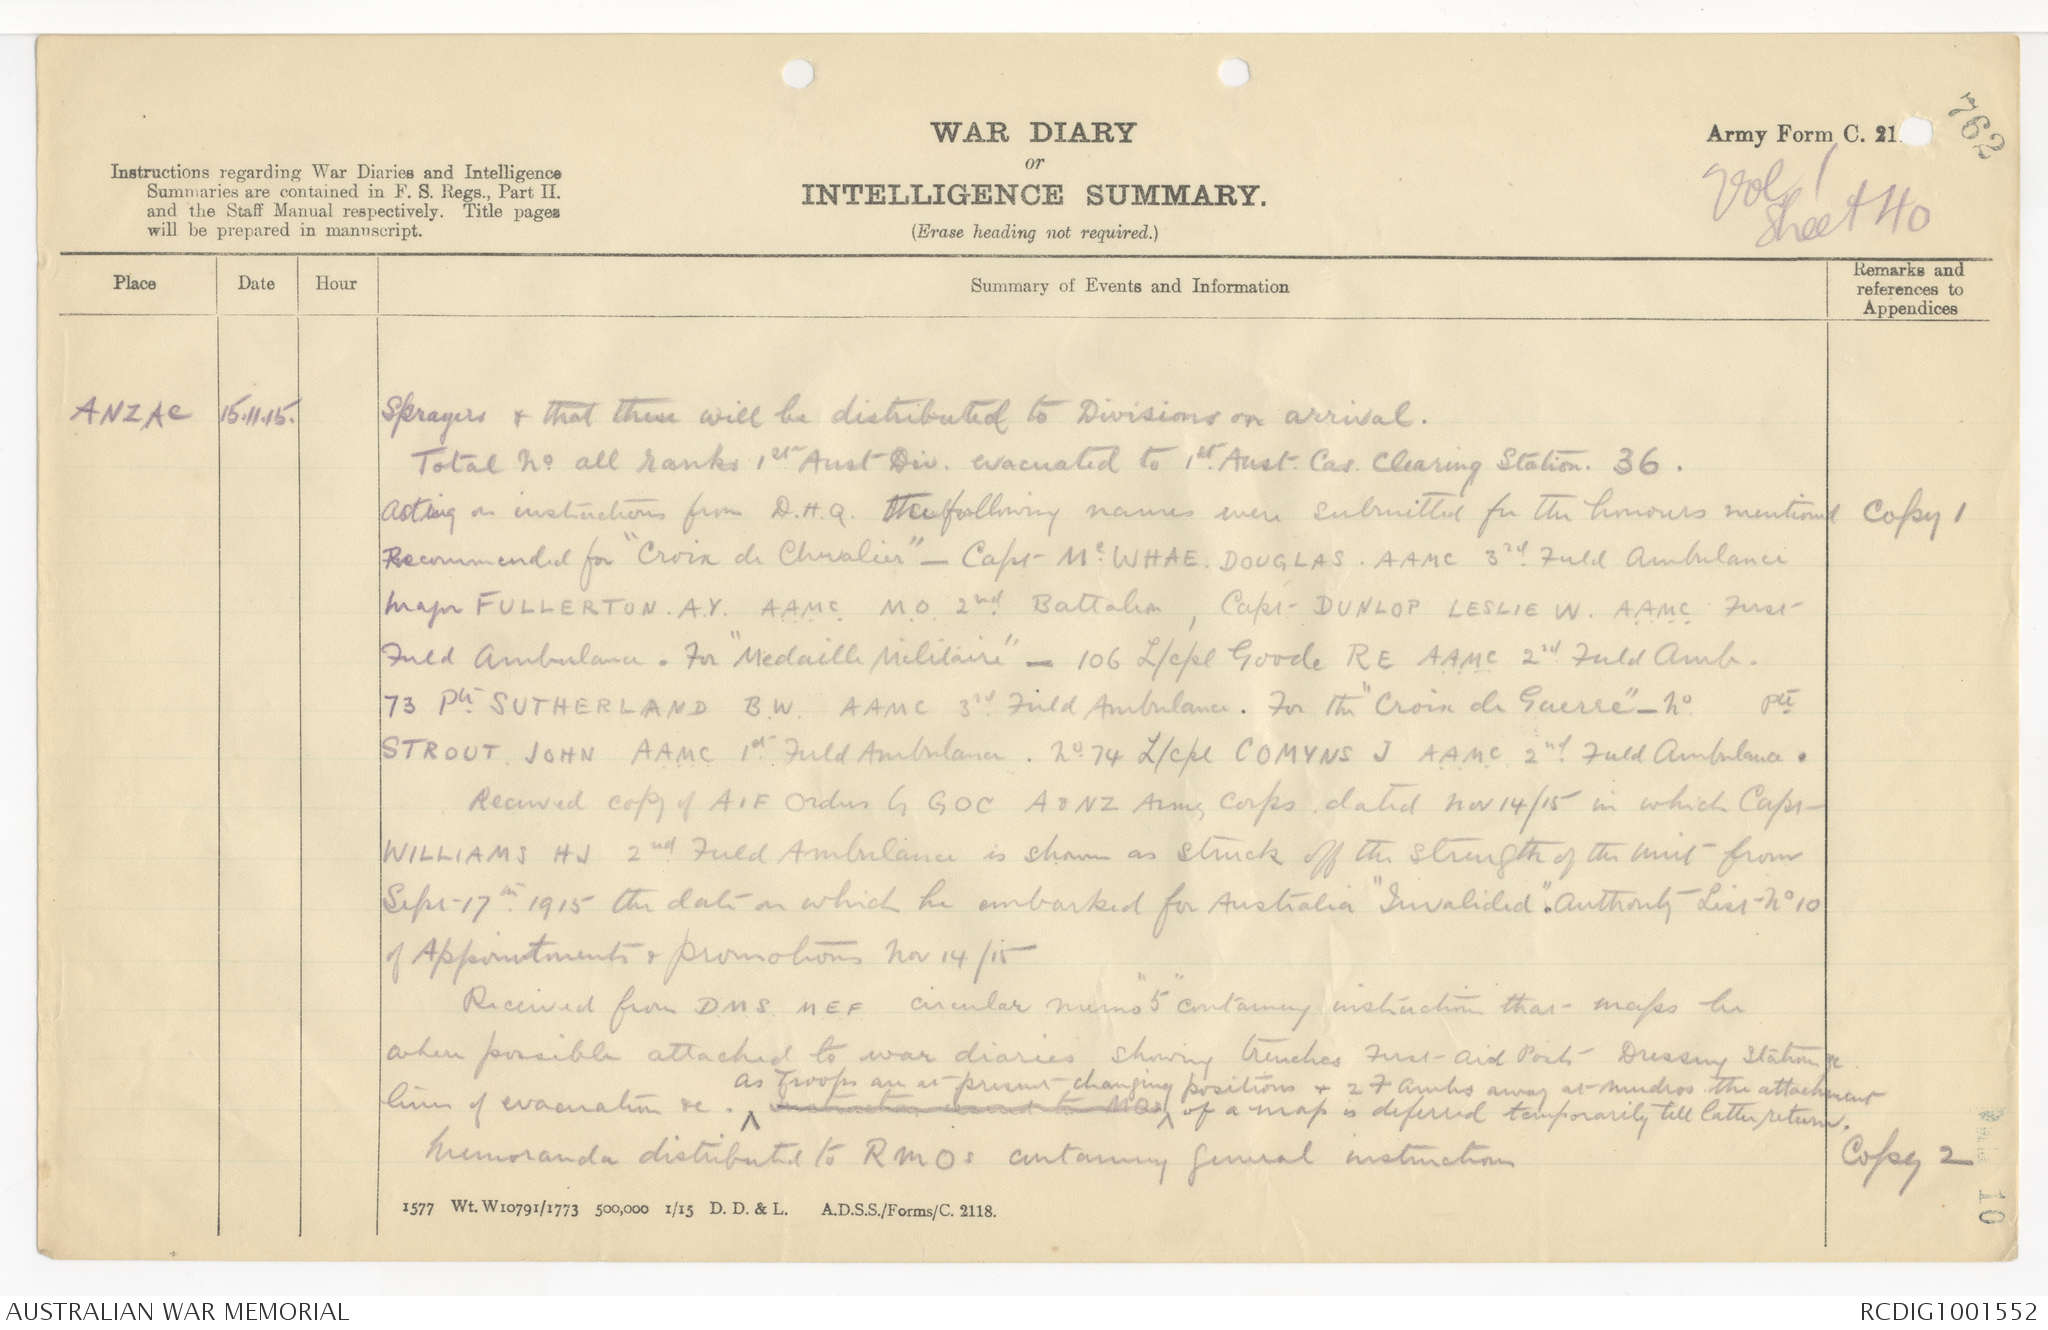 WAR DIARY
or
INTELLIGENCE SUMMARY.
(Erase heading not required.)
Instructions regarding War Diaries and Intelligence
Summaries are contained in F. S. Regs., Part II.
and the Staff Manual respectively. Title pages
will be prepared in manuscript.
Army Form C. 21
762
Vol 1
Sheet 40
Place
Date
Hour
Summary of Events and Information
Remarks and
references to
Appendices
ANZAC 15.11.15. Sprayers & that these will be distributed to Divisions on arrival.
Total No all ranks 1st Aust Div. evacuated to 1st Aust. Cas. Clearing Station. 36.
Acting on instructions from D.H.Q. the following names were submitted for the honours mentioned Copy 1
Recommended for "Croix de Chevalier" — Capt Mc.WHAE. DOUGLAS. AAMC 3rd Field Ambulance
Major FULLERTON. A.Y. AAMC M.O. 2nd Battalion, Capt DUNLOP LESLIE W. AAMC First
Field Ambulance. For "Medaille Militaire" — 106 L/cpl Goode R E AAMC 2nd Field Amb.
73 Pte SUTHERLAND B.W. AAMC 3rd Field Ambulance. For the "Croix de Guerre" — No Pte
STROUT JOHN AAMC 1st Field Ambulance. No 74 L/cpl COMYNS J AAMC 2nd Field Ambulance.
Received copy of AIF Orders by GOC A & NZ Army Corps dated Nov 14/15 in which Capt
WILLIAMS HJ 2nd Field Ambulance is shown as struck off the strength of the unit from
Sept 17th 1915 the date on which he embarked for Australia "Invalided". Authority List No 10
of Appointments & promotions Nov 14/15
Received from DMS MEF circular memo "5" containing instruction that maps be
when possible attached to war diaries showing trenches First Aid Posts Dressing Stations &
as troops are at present changing positions & 2 F Ambs away at Mudros the attachment
lines of evacuation &c. of a map is deferred temporarily till latter return.
Memoranda distributed to RMOs containing general instructions Copy 2
10
1577 Wt. W10791/1773 500,000 1/15 D. D. & L. A.D.S.S./Forms/C. 2118.
AUSTRALIAN WAR MEMORIAL
RCDIG1001552